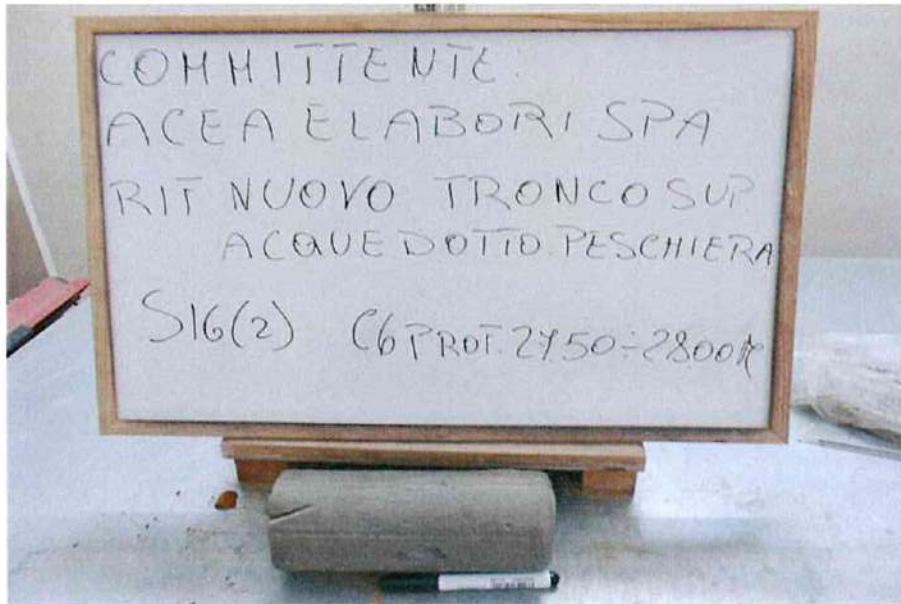 COMMITTENTE:
ACEA ELABORI SPA
RIT NUOVO TRONCO SUP.
ACQUEDOTTO PESCHIERA
S16(2) C6 PROT. 27.50÷28.00 m